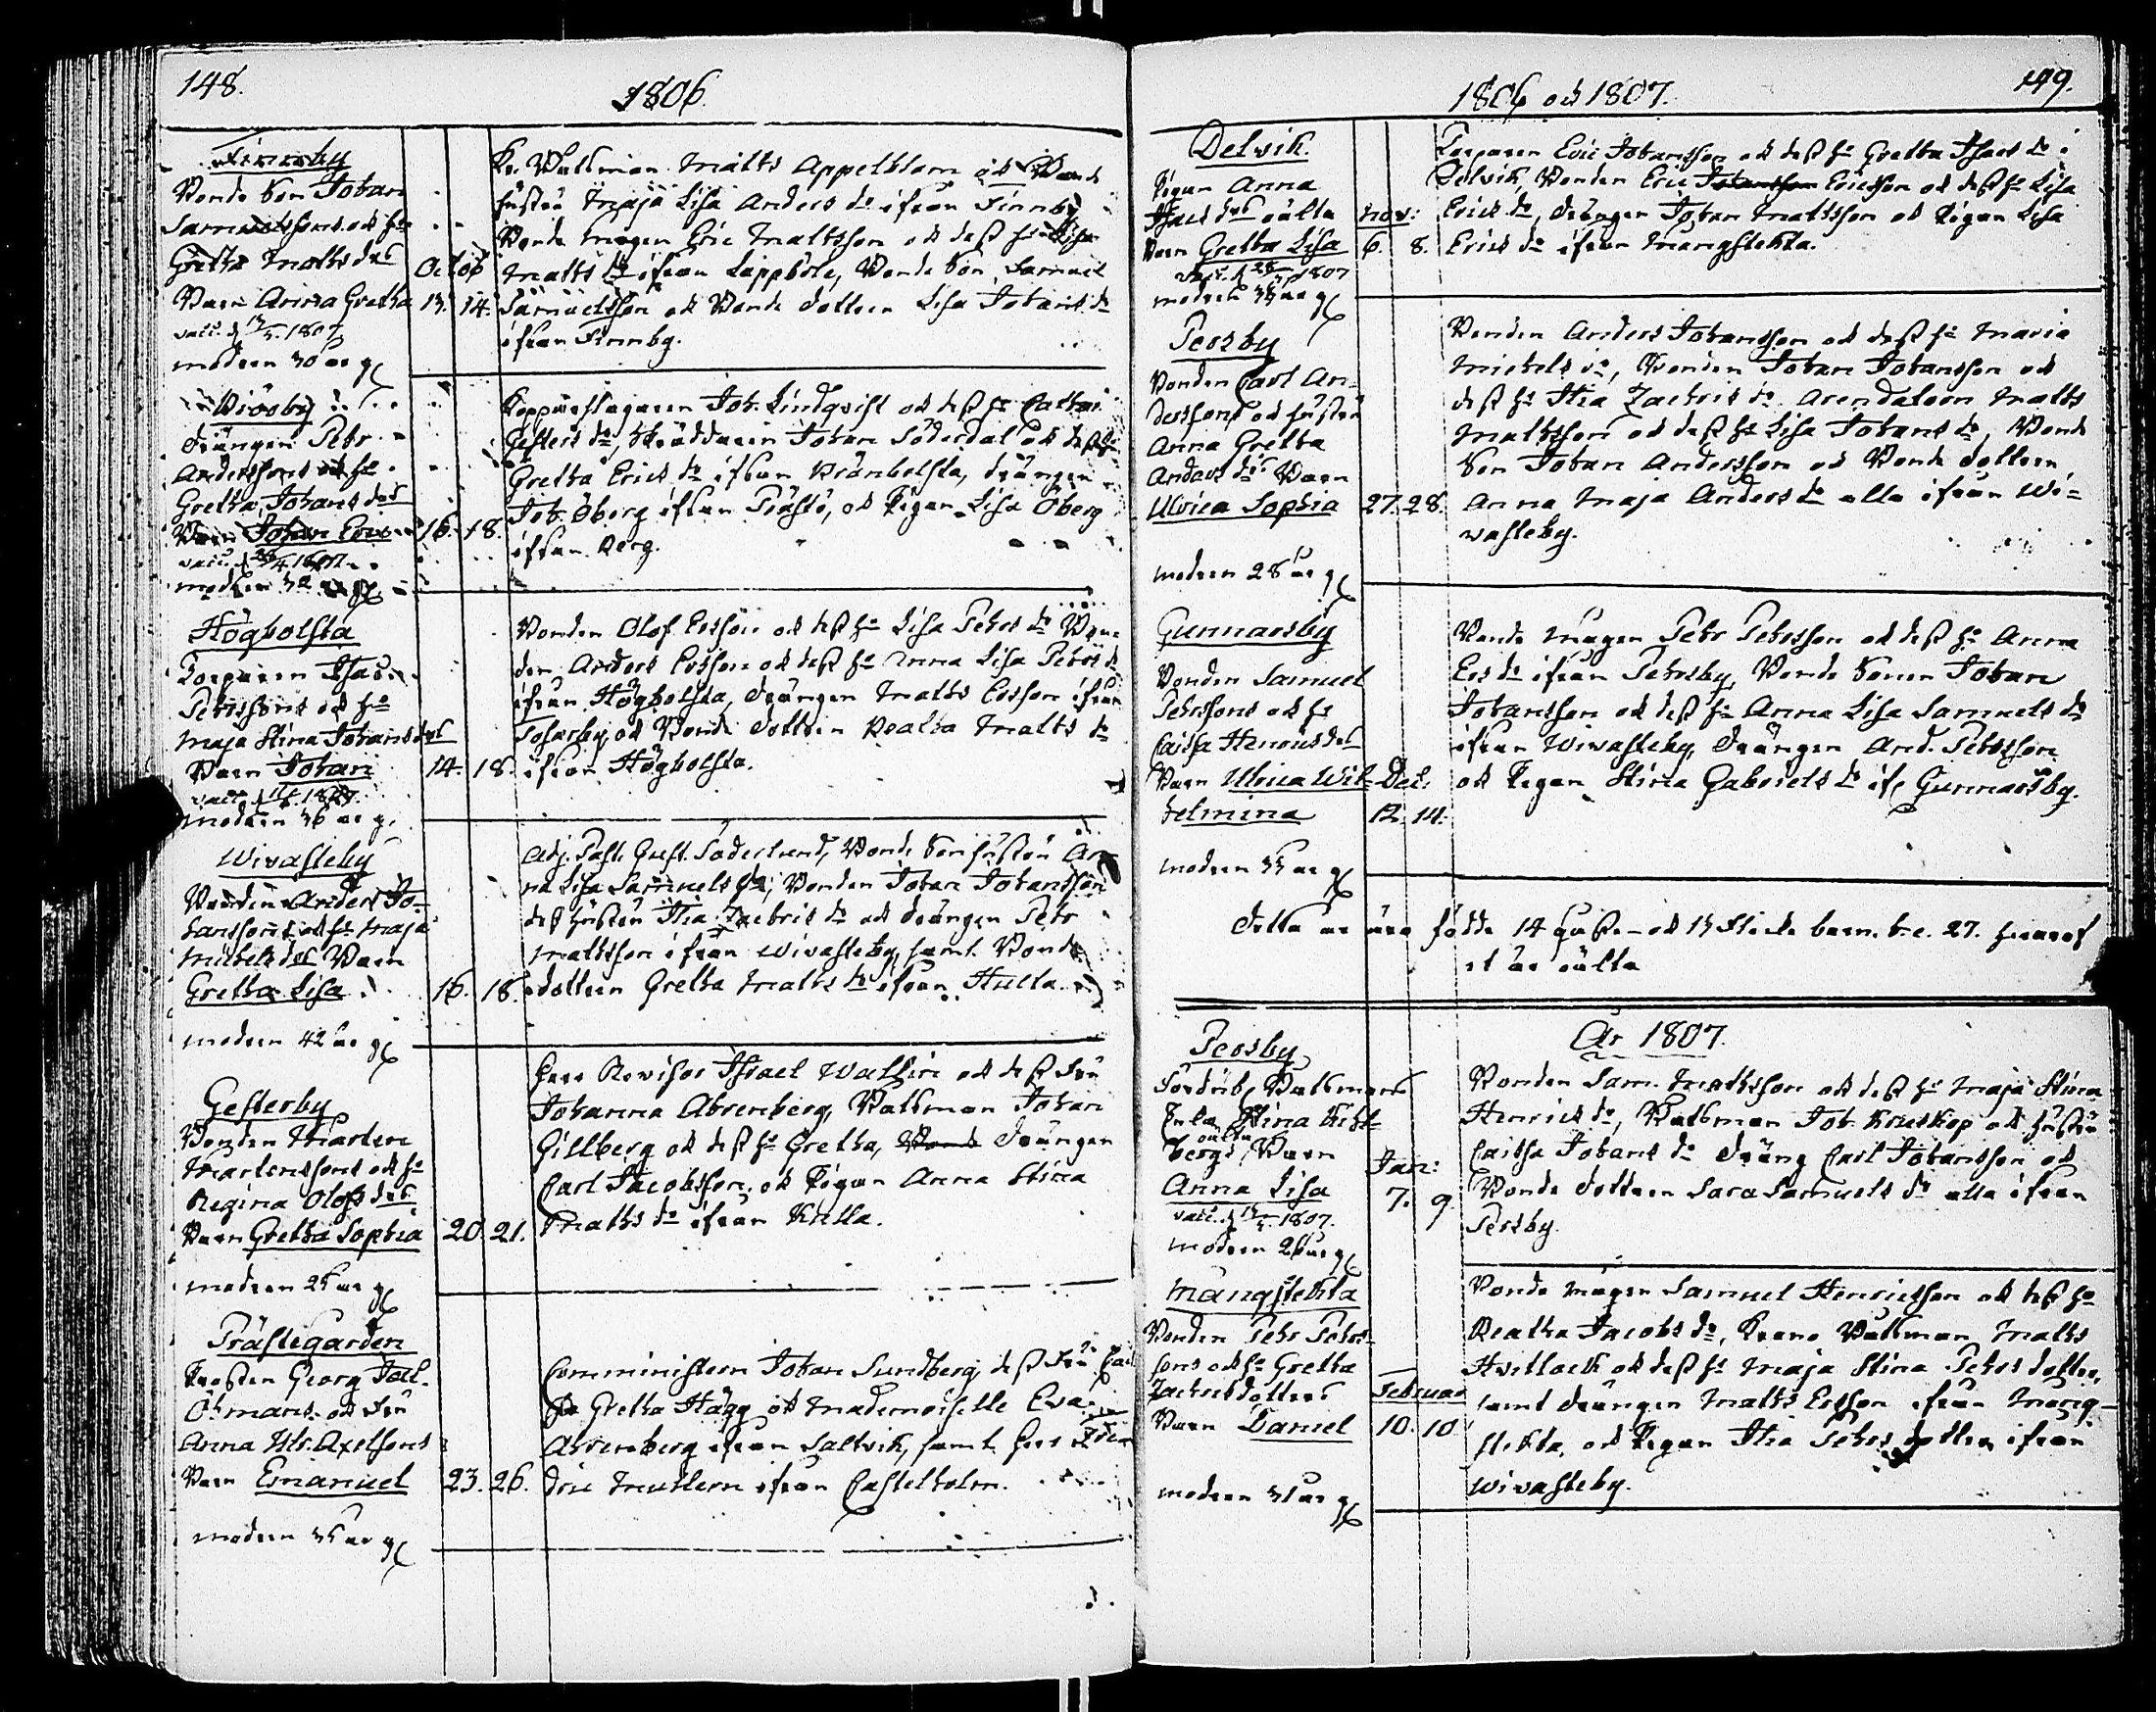 148.
1806.
Finnby
Bonde Son Johan
Samuelssons och h:s
Gretha Matts drs
Barn Anna Gretha
vacc. d 13/5 1807
modren 30 år g.
Octob
13. 14.
Kr. Båtsman Matts Appelblom och Bonde
hustru Maja Lisa Anders dr ifrån Finnby
Bonde Mågen Eric Mattsson och dess h:u Lisa
Matts dr ifrån Lappböle, Bonde Son Samuel
Samuelsson och Bonde dottren Lisa Johans dr
ifrån Finnby.
Drängen Pehr
Anderssons och h:s
Gretha Johans drs
Barn Johan Eric
modren 32 år g.
16. 18.
Kopparslagaren Joh. Lindqvist och dess h:u Cathar.
Gesters dr, Skräddaren Johan Söderdal och dess h:u
Gretha Erics dr ifrån Kränbolsta, drängen
Joh. Öberg ifrån Prästö, och Pigan Lisa Öberg
ifrån Berg.
Högbolsta
Torparen Isac
Pehrssons och h:s
Maja Stina Johans drs
Barn Johan
modren 36 år g.
14. 18.
Bonden Olof Ersson och dess h:u Lisa Pehrs dr Bon-
den Anders Ersson och dess h:u Anna Lisa Pehrs dr
ifrån Högbolsta, drängen Matts Ersson ifrån
Tosarby och Bonde dottren Beatha Matts dr
ifrån Högbolsta.
Wivasteby
Bonden Anders Jo-
hanssons och h:s Maja
Michels drs Barn
Gretha Lisa
modren 42 år g.
16. 18.
Adj. Past. Gust. Söderlund, Bonde Son hustrun An-
na Lisa Samuels dr, Bonden Johan Johansson
dess hustru Stia Zachris dr och drängen Pehr
Mattsson ifrån Wivasteby, samt Bonde
dottren Gretha Matts dr ifrån Hulta.
Gesterby
Bonden Mårten
Mårtenssons och h:s
Regina Olofs drs
Barn Gretha Sophia
modren 25 år g.
20. 21.
Herr Revisor Israel Wallin och dess Fru
Johanna Ahrenberg, Båtsman Johan
Gillberg och dess h:u Gretha, Bonde Drängen
Carl Jacobsson, och Pigan Anna Stina
Matts dr ifrån Kulla.
Prästegården
Prosten Georg Jac.
Öhmans och Fru
Anna Axelsons
Barn Emanuel
modren 35 år g.
23. 26.
Comministern Johan Sundberg, dess Fru
Gretha Hägg och Mademoiselle Eva
Ahrenberg ifrån Saltvik, samt Herr Fred-
dric Muhlern ifrån Castelholm.
1806 och 1807.
149.
Delvik.
Pigan Anna
Isacs drs oälta
Barn Gretha Lisa
1807
modren 38 år g.
Nov:
6. 8.
Torparen Eric Johansson och dess h:u Gretha Isacs dr i
Delvik, Bonden Eric Johansson Ericsson och dess h:u Lisa
Erics dr, drängen Johan Mattsson och Pigan Lisa
Erics dr ifrån Mångstekta.
Persby
Bonden Carl An-
derssons och hustru
Anna Gretha
Anders drs Barn
Ulrica Sophia
modren 28 år g.
27. 28.
Bonden Anders Johansson och dess h:u Maria
Michels dr, Bonden Johan Johansson och
dess h:u Stia Zachris dr Arendatorn Matts
Mattsson och dess h:u Lisa Johans dr, Bonde
Son Johan Andersson och Bonde dottren
Anna Maja Anders dr alla ifrån Wi-
vasteby.
Gunnarsby
Bonden Samuel
Pehrssons och h:s
Caisa Henrics drs
Barn Ulrica Wil-
helmina
modren 33 år g.
Dec.
12. 14.
Bonde Mågen Pehr Pehrsson och dess h:u Anna
Ers dr ifrån Pehrsby, Bonde Sonen Johan
Johansson och dess h:u Anna Lisa Samuels dr
ifrån Wivasteby, drängen And. Pehrsson
och Pigan Stina Gabriels dr ifr. Gunnarsby.
Detta år äro födde 14 Gåsse- och 13 Flicke barn. S:e. 27. hvaraf
et är oälta
År 1807.
Persby
Barn
Anna Lisa
vacc. d 13/5 1807.
modren 26 år g.
Jan:
7. 9.
Bonden Sam. Mattsson och dess h:u Maja Stina
Henrics dr, Båtsman Joh. Kruskop och hustru
Caisa Johans dr Dräng Carl Johansson och
Bonde dottren Sara Samuels dr alla ifrån
Persby.
Mångstekta
Bonden Pehr Pehrs-
sons och h:s Gretha
Zachrisdotters
Barn Daniel
modren 31 år g.
Februar
10. 10
Bonde Mågen Samuel Henricsson och dess h:u
Beatha Jacobs dr, Krono Båtsman Matts
Hvitlock och dess h:u Maja Stina Pehrs dotter,
samt drängen Matts Ersson ifrån Mång-
stekta, och Pigan Stia Pehrs dotter ifrån
Wivasteby.